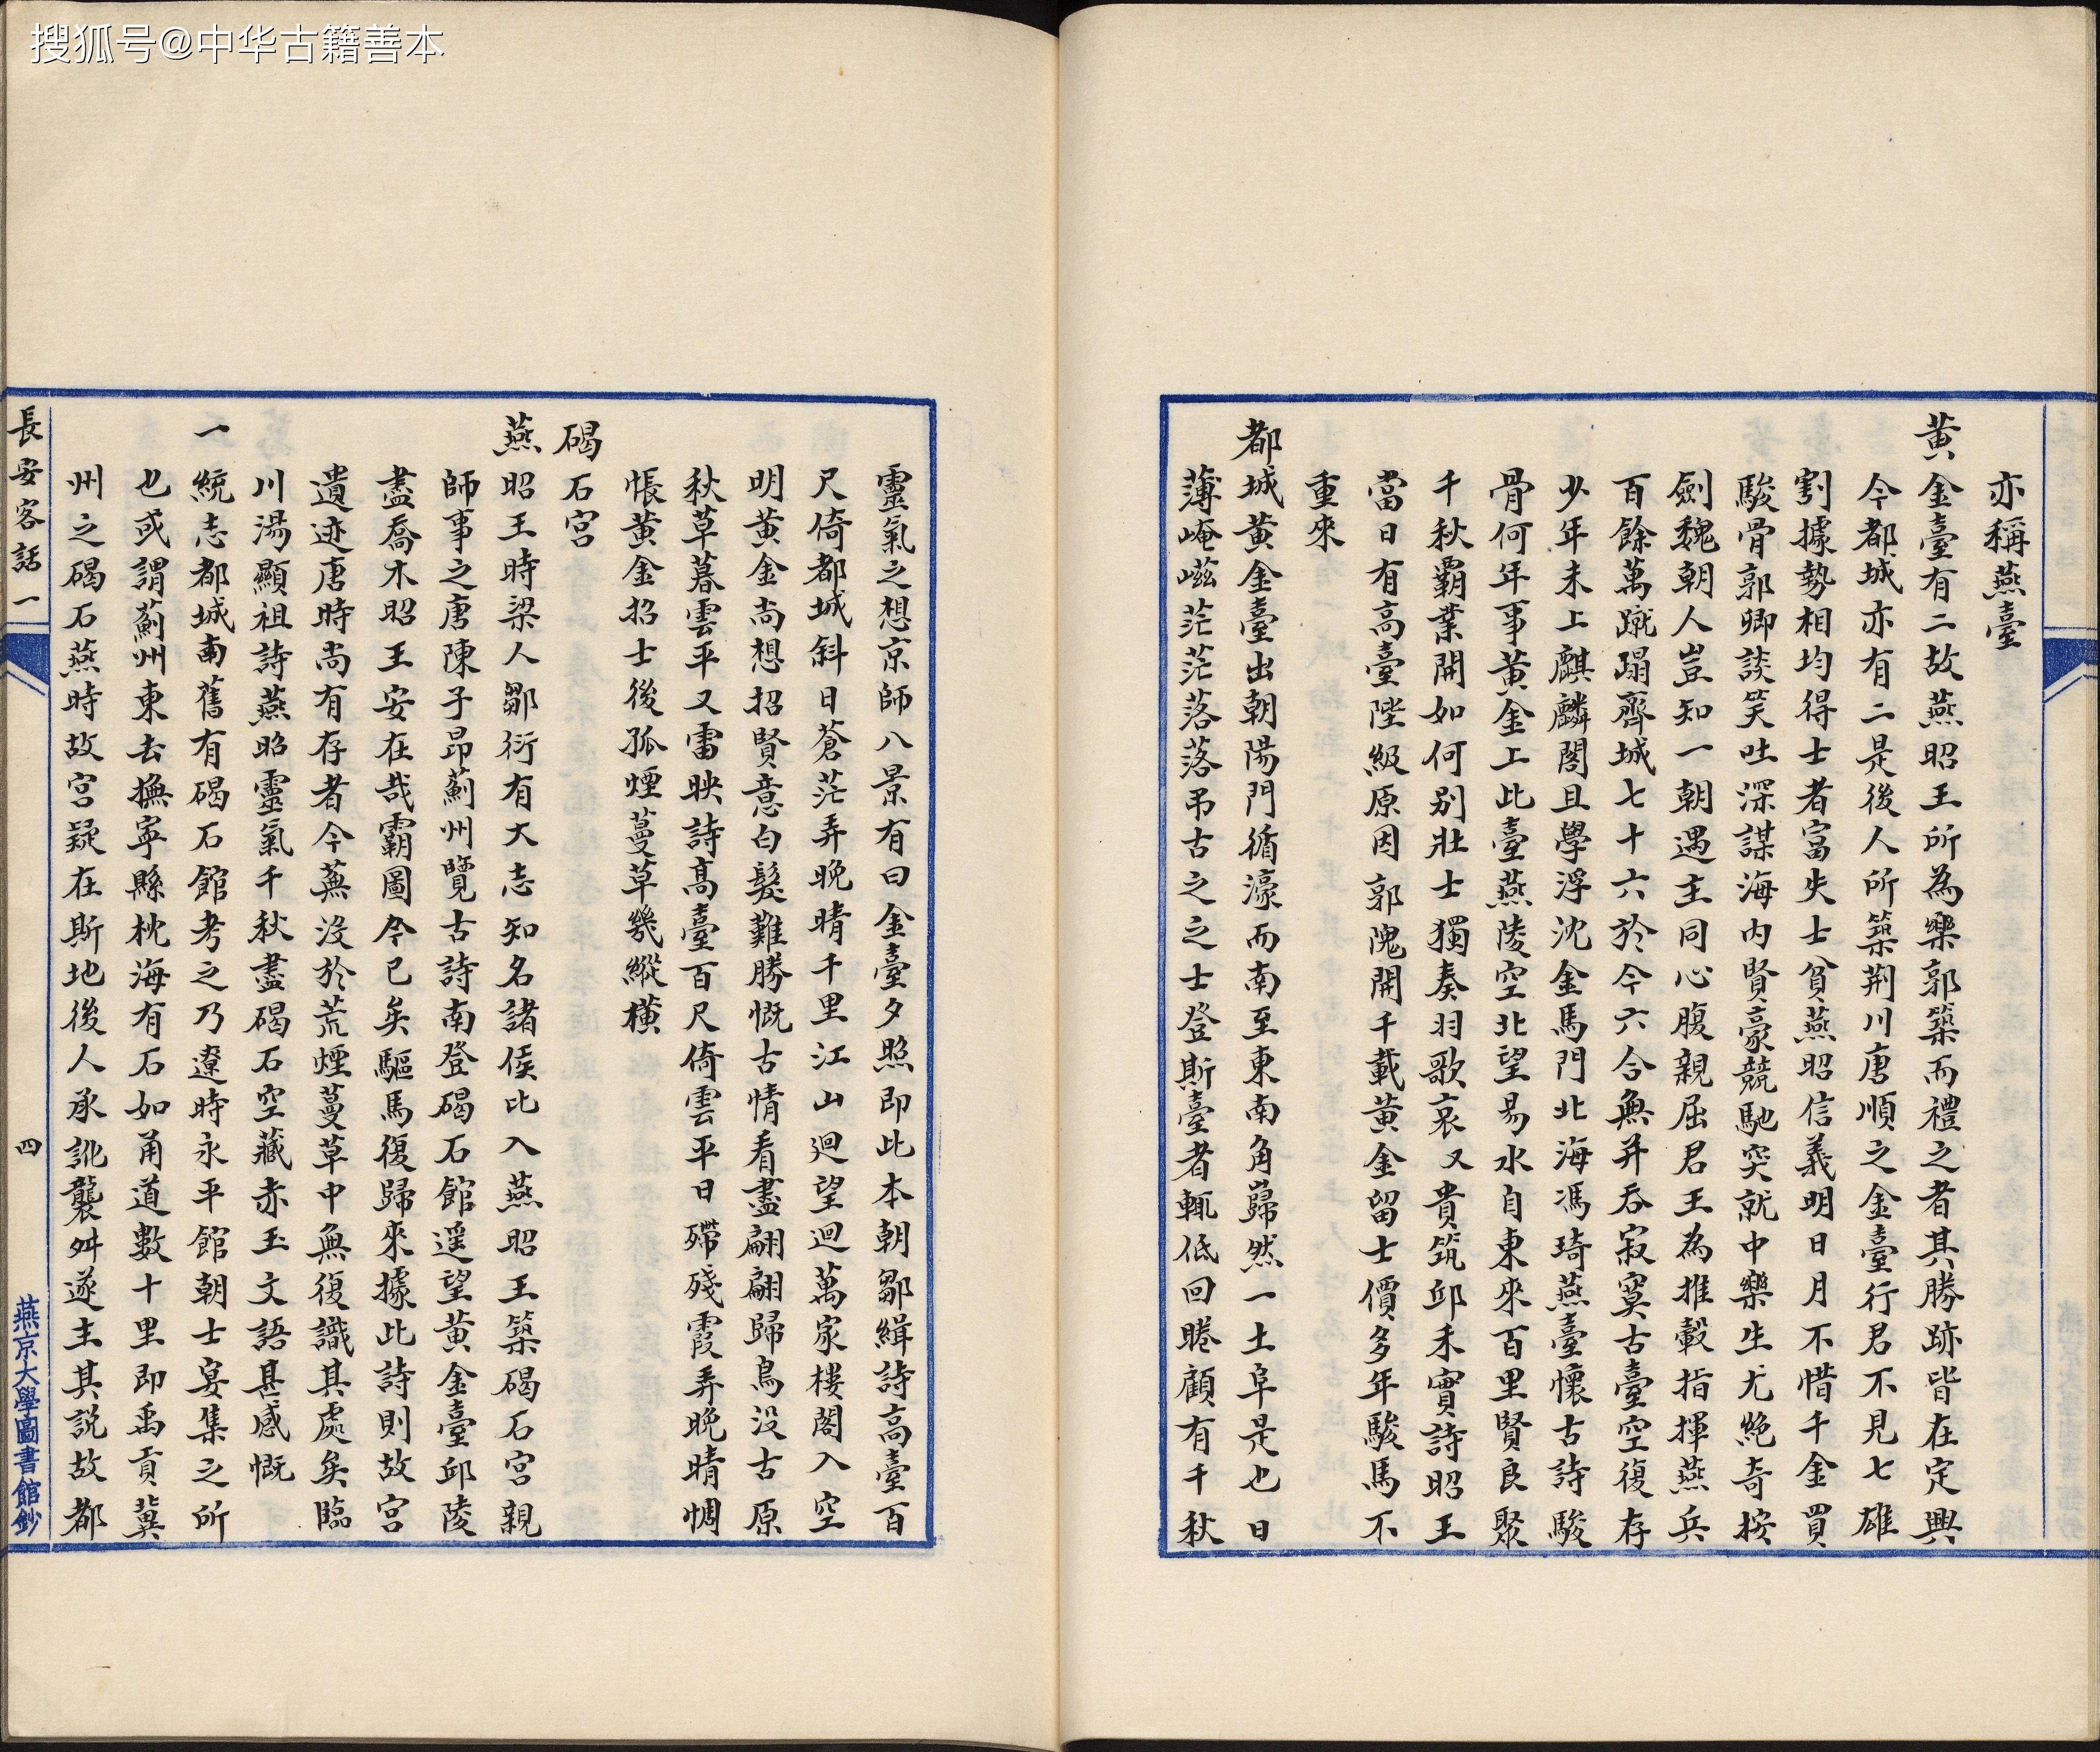 搜狐号@中华古籍善本
亦稱燕臺
黃金臺有二故燕昭王所為樂郭築而禮之者其勝跡皆在定興
今都城亦有二是後人所築荆川唐順之金臺行君不見七雄
割據勢相均得士者富失士貧燕昭信義明日月不惜千金買
駿骨郭卿談笑吐深謀海內賢豪競馳突就中樂生尤絶奇按
劍魏朝人豈知一朝遇主同心腹親屈君王為推轂指揮燕兵
百餘萬蹴蹋齊城七十六於今六合無并吞寂寞古臺空復存
少年未上麒麟閣且學浮沈金馬門北海馮琦燕臺懷古詩駿
骨何年事黃金上此臺燕陵空北望易水自東來百里賢良聚
千秋霸業開如何别壯士獨奏羽歌哀又貴筑邱禾實詩昭王
當日有高臺陛級原因郭隗開千載黃金留士價多年駿馬不
重來
都城黃金臺出朝陽門循濠而南至東南角巋然一土阜是也日
薄崦嵫茫茫落落吊古之之士登斯臺者輒低回睠顧有千秋
靈氣之想京師八景有曰金臺夕照即此本朝鄒緝詩高臺百
尺倚都城斜日蒼茫弄晚晴千里江山迴望迴萬家樓閣入空
明黃金尚想招賢意白髮難勝慨古情看盡翩翩歸鳥没古原
秋草暮雲平又雷映詩髙臺百尺倚雲平日殢殘霞弄晚晴惆
悵黃金招士後孤煙蔓草幾縱橫
碣石宮
燕昭王時梁人鄒衍有大志知名諸侯比入燕昭王築碣石宮親
師事之唐陳子昂薊州覽古詩南登碣石館遥望黃金臺邱陵
盡喬木昭王安在哉霸圖今已矣驅馬復歸來據此詩則故宮
遺迹唐時尚有存者今蕪没於荒煙蔓草中無復識其處矣臨
川湯顯祖詩燕昭靈氣千秋盡碣石空藏赤玉文語甚感慨
一統志都城南舊有碣石館考之乃遼時永平館朝士宴集之所
也或謂薊州東去撫寧縣枕海有石如甬道數十里即禹貢冀
州之碣石燕時故宮疑在斯地後人承訛襲舛遂主其説故都
長安客話一
四
燕京大學圖書館鈔